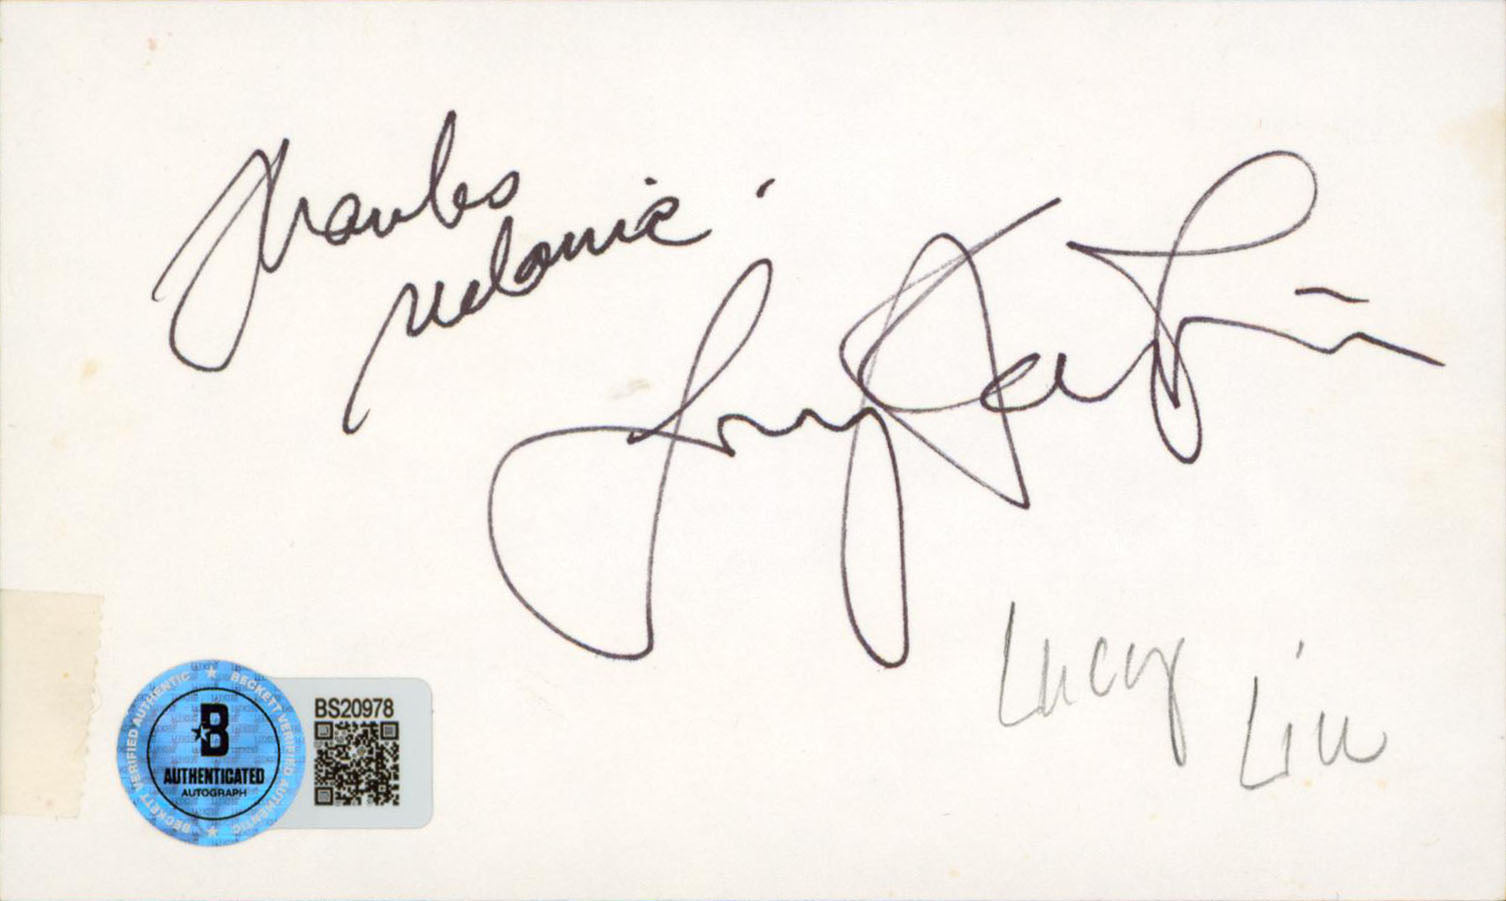 Thanks
Melanie!
Lucy Liu
Lucy
Liu
BS20978
BECKETT VERIFIED AUTHENTIC
BECKETT VERIFIED AUTHENTIC
B
AUTHENTICATED
AUTOGRAPH